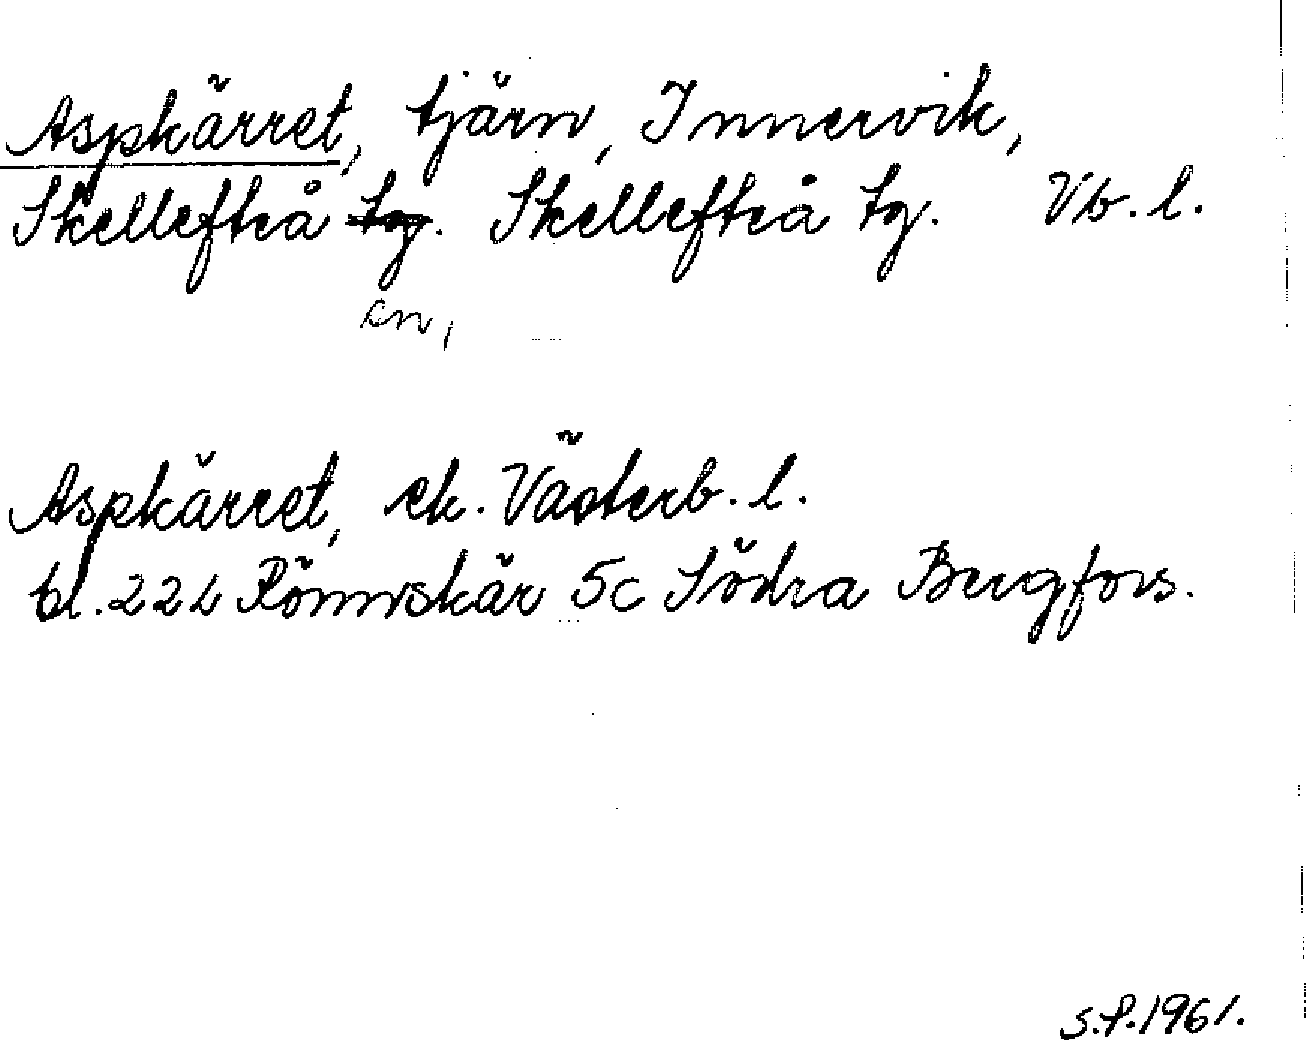 Aspkärret, tjärn, Innervik,
Skellefteå tg. Skellefteå tg. Vb. l.
sn,
Aspkärret, ek. Västerb. l.
bl. 22L Rönnskär 5c Södra Bergfors.
S.P. 1961.